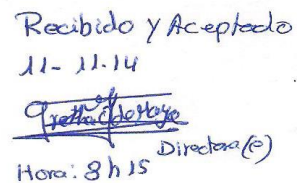 Recibido y Aceptado
11-11.14
Directora (e)
Hora: 8h15